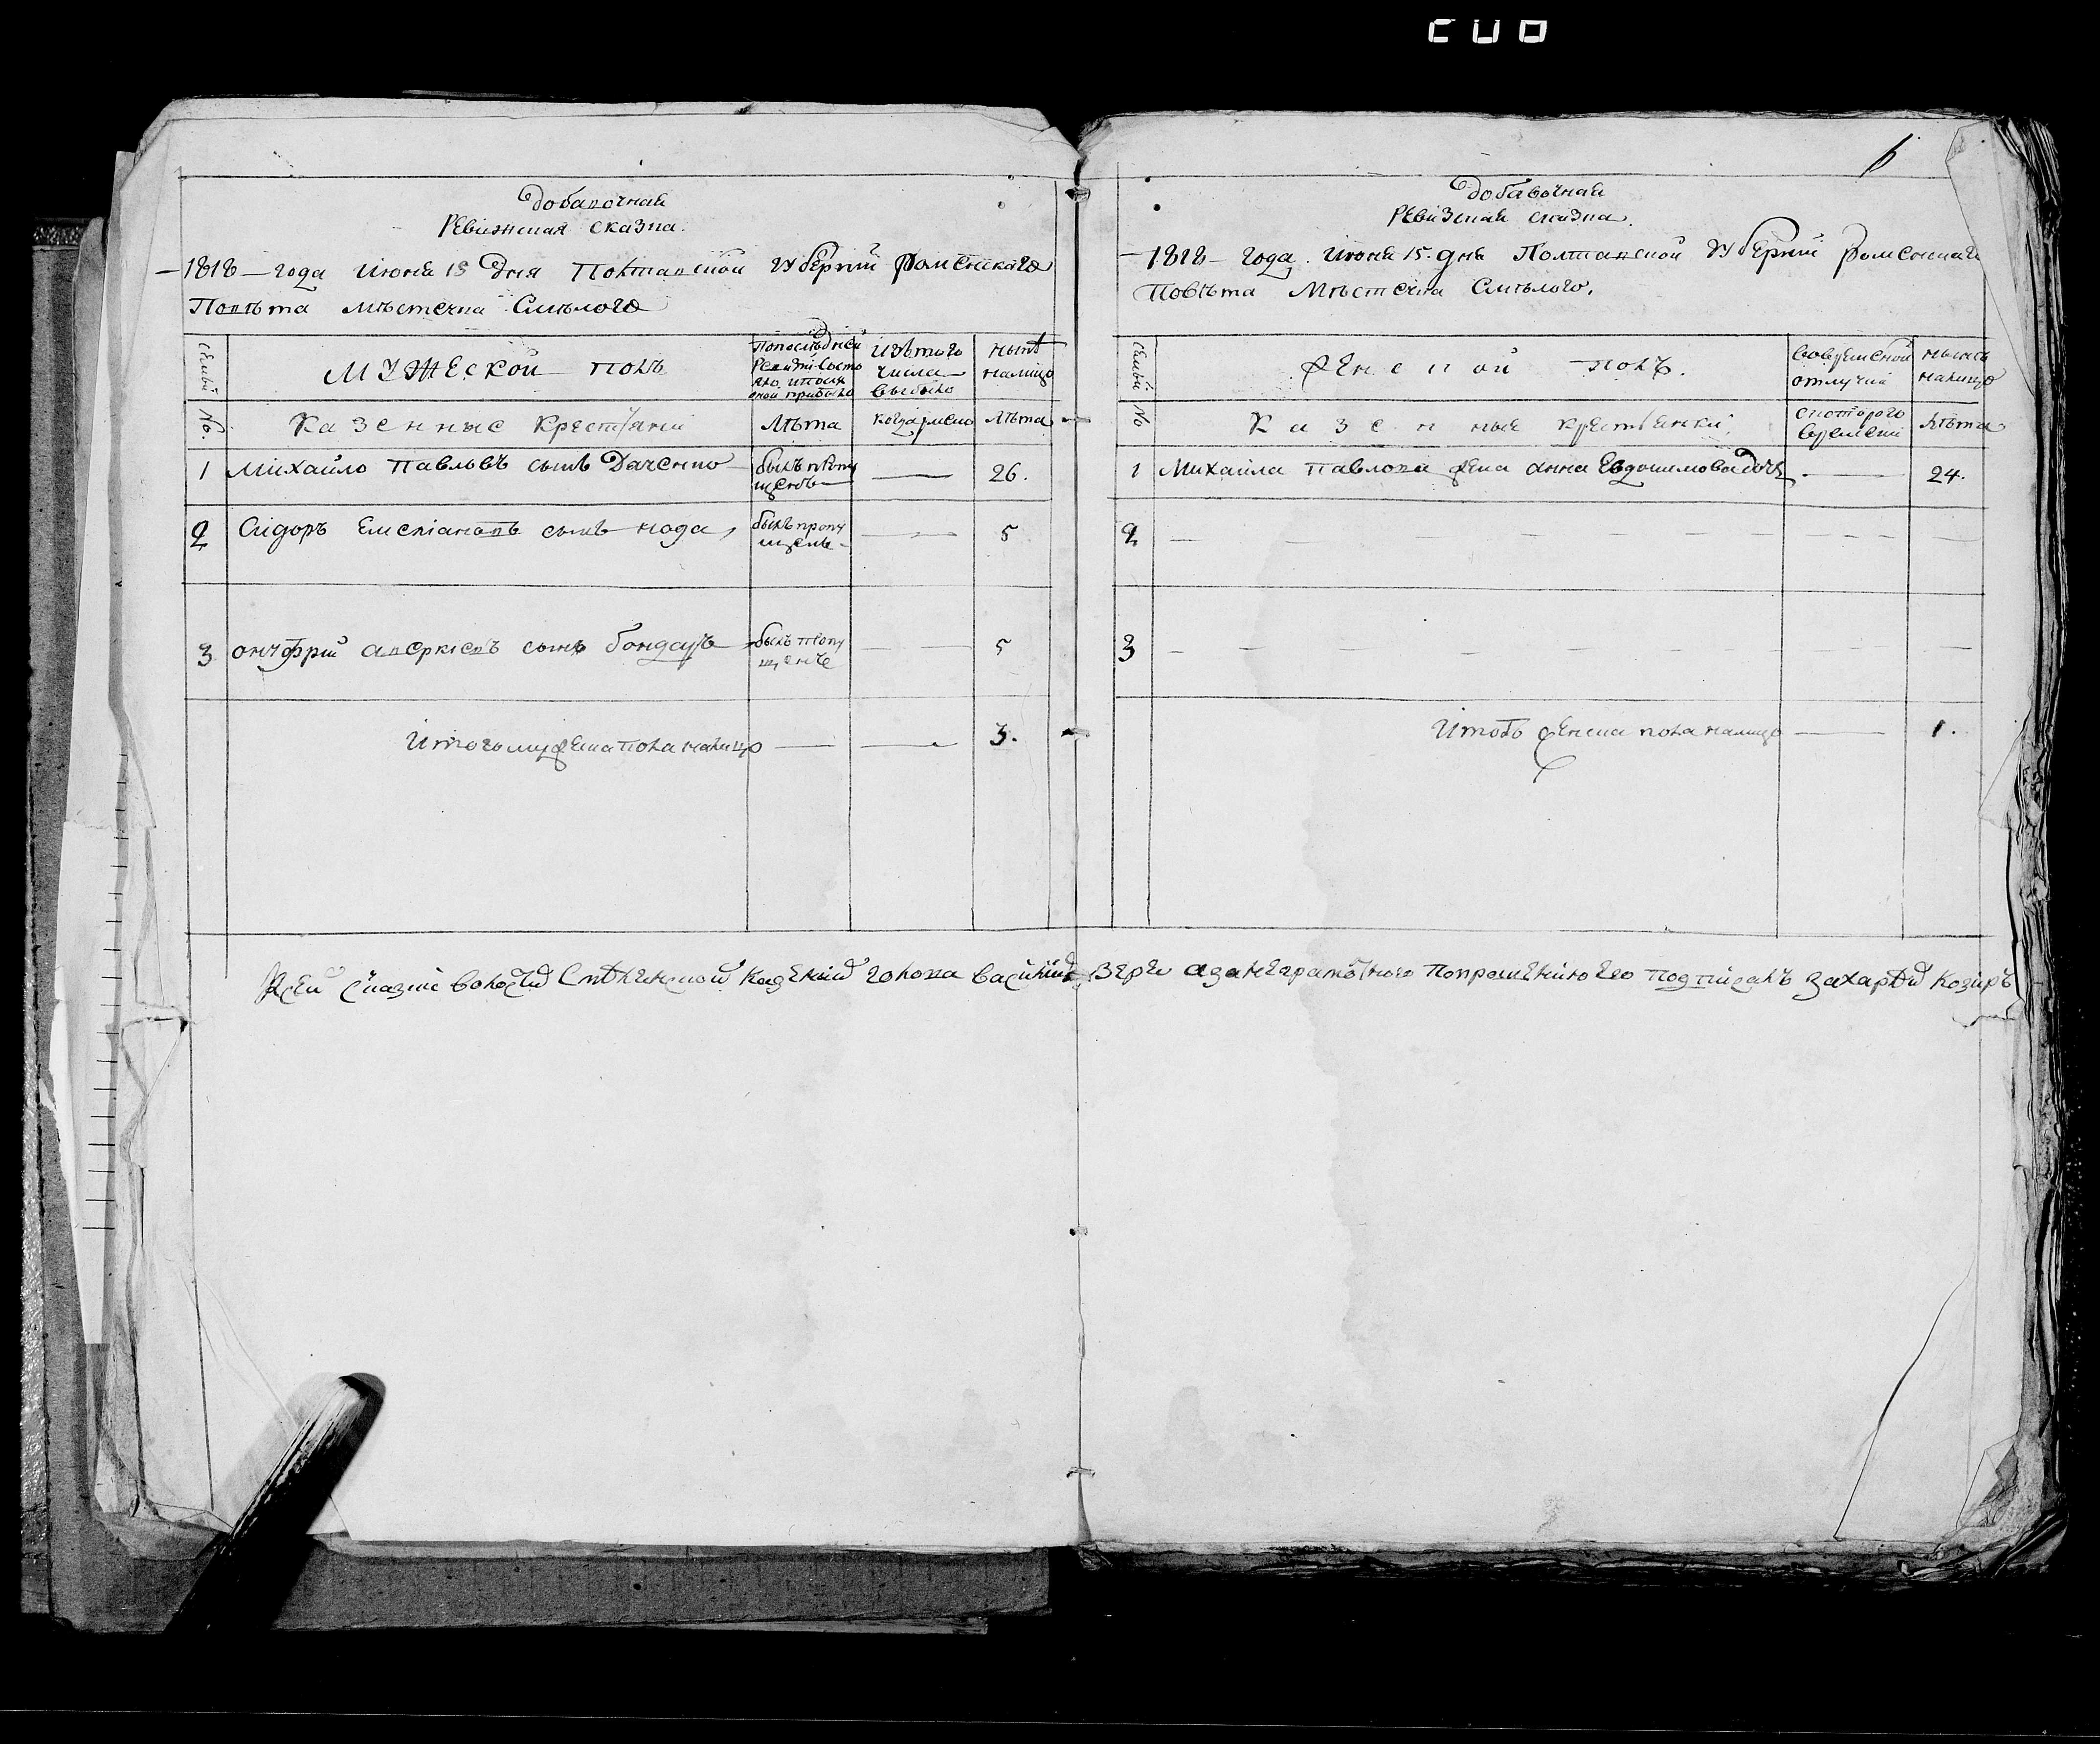 Добавочная
Ревижская сказка.
1818 года Июня 15 Дня Полтавской Губернии Роменскаго
Повѣта Мѣстечка Смѣлого
Семьи
Мужеской полъ
По последней Ревизии состояло и после оной прибыло
Изъ того числа выбыло
Нынѣ налицо
No.
Казенные Крестьяни
Лѣта
Когда имено
Лѣта
1 Михайло Павловъ сынъ Даченко былъ пропущенъ — 26.
2 Сидоръ Емелiановъ сынъ кода былъ пропущенъ — 5
3 Онуфрий Аверкiевъ сынъ бондаръ былъ пропущенъ — 5
Итого мужеска пола налицо — — 3.
6
Добавочная
Ревизская сказка.
1818 года Июня 15 дня Полтавской Губернии Роменскаго
Повѣта Мѣстечка Смѣлого.
Семьи
Женской полъ.
Во временной отлучки
Нынѣ налицо
No
Казенные крестьянки
С которого времени
Лѣта
1 Михайла Павлова жена Анна Евдокимова дочь — 24.
2 — — — — —
3 — — — — —
Итого женска пола налицо — 1.
К сей сказки волосной Смѣлянской Казеный голова Василий а за неграмотного по прошению его подписалъ Захарий Козиръ